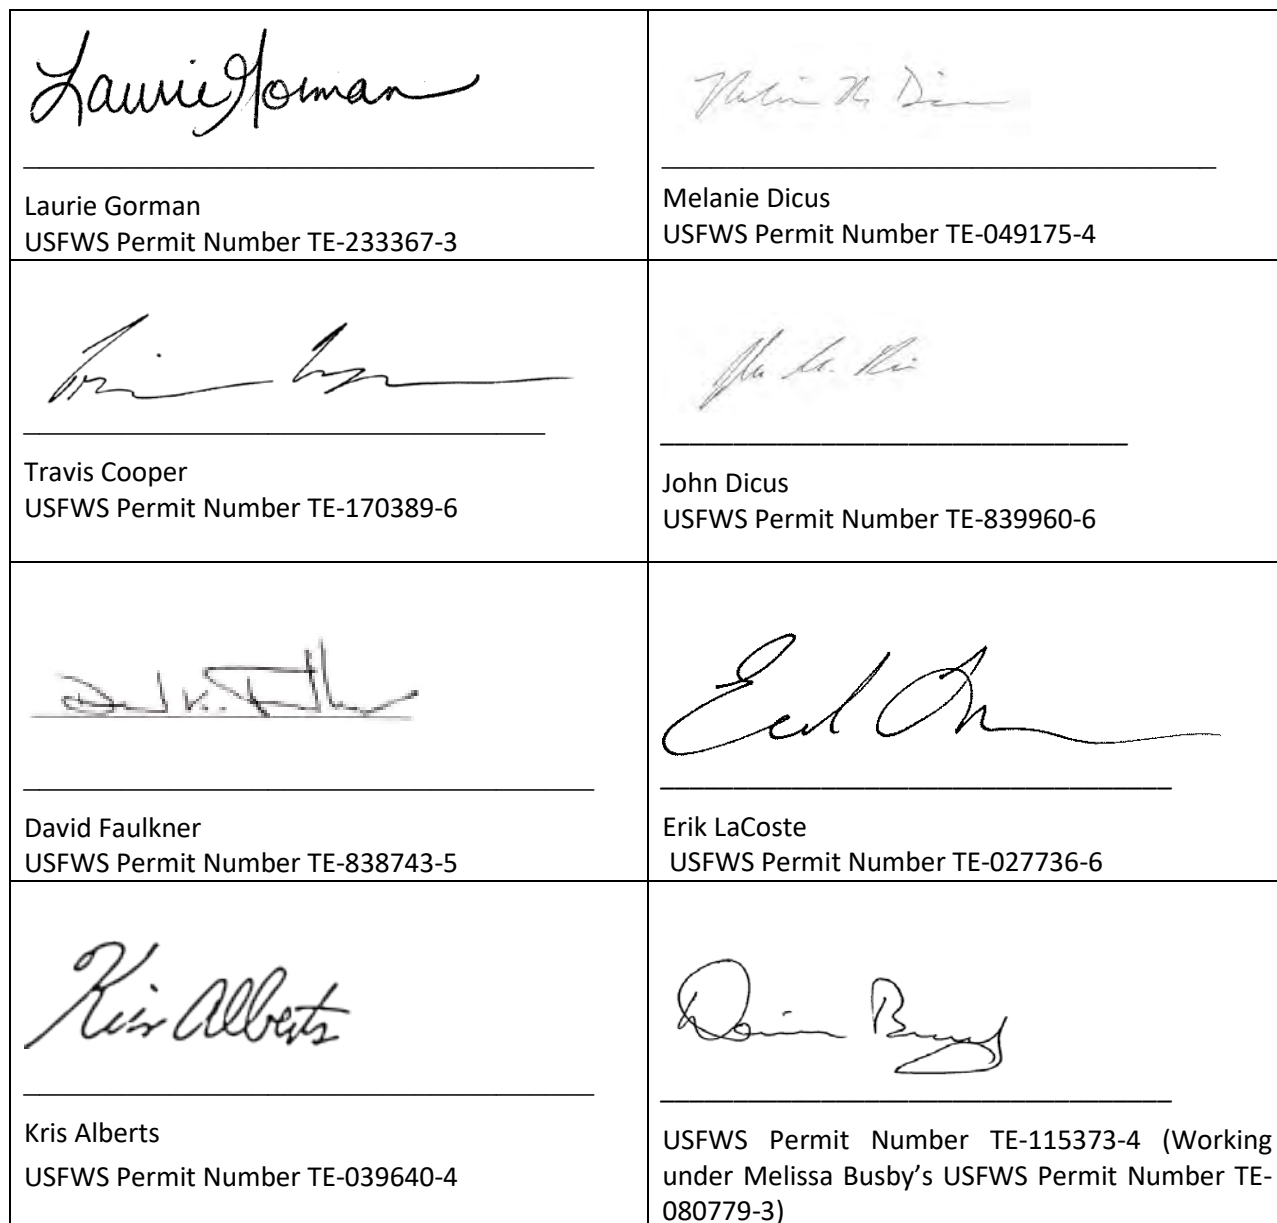 Laurie Gorman
Laurie Gorman
USFWS Permit Number TE-233367-3
Melanie Dicus
USFWS Permit Number TE-049175-4
Travis Cooper
USFWS Permit Number TE-170389-6
John Dicus
USFWS Permit Number TE-839960-6
David Faulkner
USFWS Permit Number TE-838743-5
Erik LaCoste
USFWS Permit Number TE-027736-6
Kris Alberts
Kris Alberts
USFWS Permit Number TE-039640-4
USFWS Permit Number TE-115373-4 (Working
under Melissa Busby’s USFWS Permit Number TE-
080779-3)